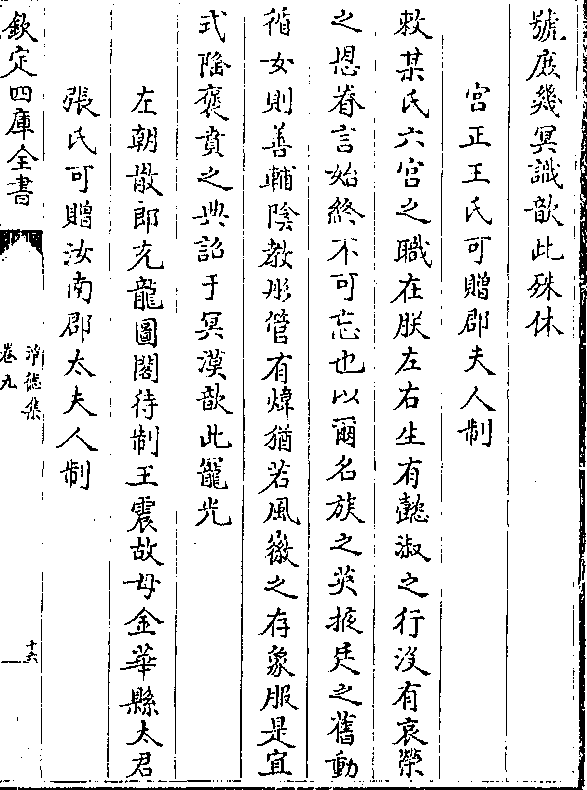 號庶幾冥識歆此殊休
宫正王氏可贈郡夫人制
敕某氏六宫之職在朕左右生有懿淑之行沒有哀榮
之恩眷言始終不可忘也以爾名族之英掖廷之舊動
循女則善輔陰教彤管有煒猶若風徽之存象服是宜
式隆褒賁之典詔于冥漠歆此寵光
左朝散郎充龍圖閣待制王震故母金華縣太君
張氏可贈汝南郡太夫人制
欽定四庫全書
淨德集
卷九
十六